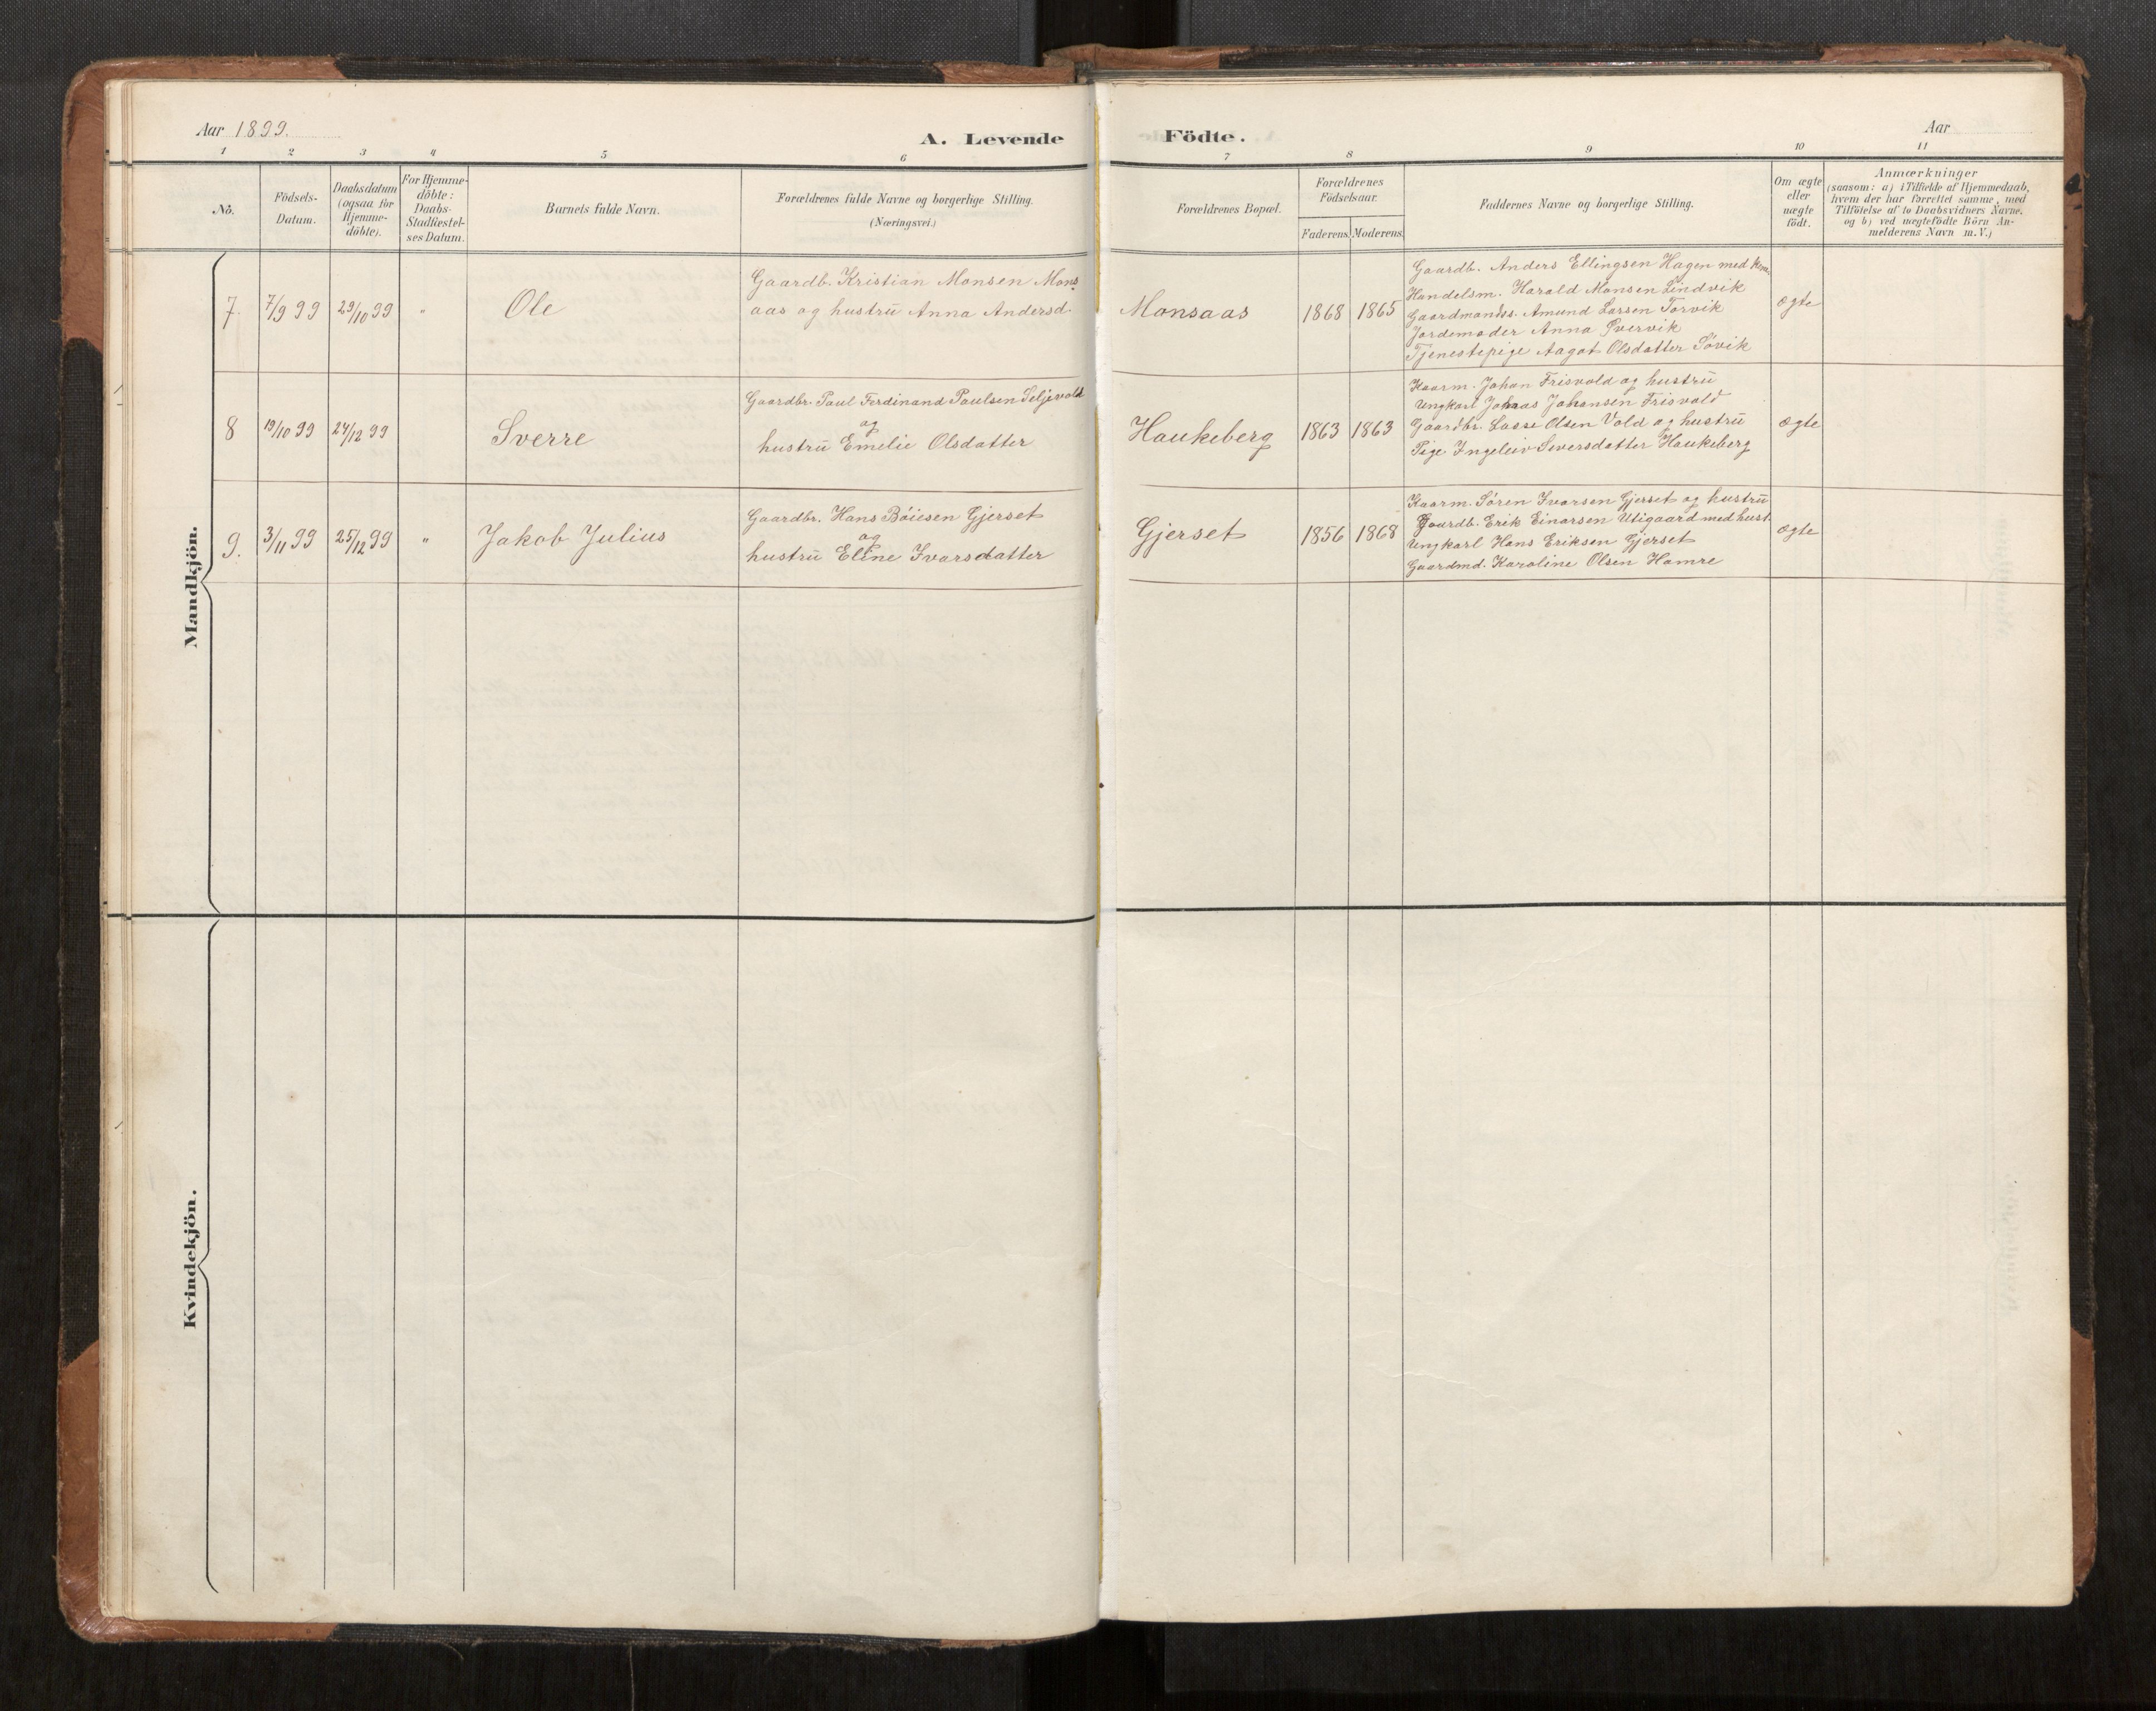 Aar 1899.
A. Levende
Födte.
Aar
1 2 3 4 5 6 7 8 9 10 11
No.
Födsels-
Datum.
Daabsdatum
(ogsaa for
Hjemme-
döbte).
For Hjemme-
döbte:
Daabs-
Stadfæstel-
ses Datum.
Barnets fulde Navn.
Forældrenes fulde Navne og borgerlige Stilling.
(Næringsvei.)
Forældrenes Bopæl.
Forældrenes
Födselsaar.
Faderens. Moderens.
Faddernes Navne og borgerlige Stilling.
Om ægte
eller
uægte
födt.
Anmærkninger
(saasom: a) i Tilfælde af Hjemmedaab,
hvem der har forrettet samme, med
Tilföielse af to Daabsvidners Navne,
og b) ved uægtefödte Börn An-
melderens Navn m.V.)
Mandkjön.
7. 7/9 99 29/10 99 " Ole
Gaardb. Kristian Monsen Mons
aas og hustru Anna Andersd.
Monsaas 1868 1865
Gaardb. Anders Ellingsen Hagen med
Handelsm. Harald Monsen Lindvik
Gaardmandss. Amund Larsen Torvik
Jordemoder Anna Øvervik
Tjenestepige Aagot Olsdatter Søvik
ægte
8 19/10 99 24/12 99 Sverre
Gaardbr. Paul Ferdinand Paulsen Seljevold
og
hustru Emelie Olsdatter
Haukeberg 1863 1863
Kaarm. Johan Frisvold og hustru
Ungkarl Johnas Johansen Frisvold
Gaardbr. Lasse Olsen Vold og hustru
Pige Ingeleiv Seversdatter Haukeberg
ægte
9. 3/11 99 25/12 99 " Jakob Julius
Gaardbr. Hans Bóiesen Gjerset
og
hustru Eline Ivarsdatter
Gjerset 1856 1868
Kaarm. Søren Ivarsen Gjerset og hustru
Gaardb. Erik Einarsen Utigaard med hust.
Ungkarl Hans Eriksen Gjerset
Gaardmd. Karoline Olsen Hamre
ægte
Kvindekjön.